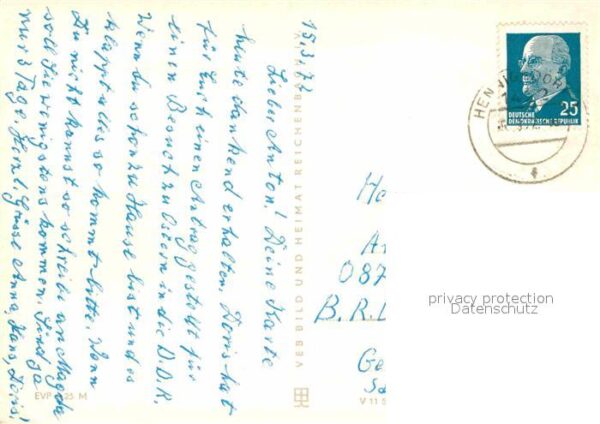 15.3.72
Lieber Anton! Deine Karte
heute dankend erhalten. Doris hat
für Euch einen Antrag gestellt für
einen Besuch zu Ostern in die D.D.R.
Wenn du schon zu Hause bist und es
klappt alles so kommt bitte. Wenn
Du nicht kannst so schreibe an Magda
soll Sie wenigstens kommen. Sind ja
nur 3 Tage. Herzl. Grüsse Anna, Hans, Doris!
EVP 0,25 M
VEB BILD UND HEIMAT REICHENBACH I. V.
V 11 5
25
DEUTSCHE
DEMOKRATISCHE REPUBLIK
He
An
087
B.R.
Ge
privacy protection
Datenschutz